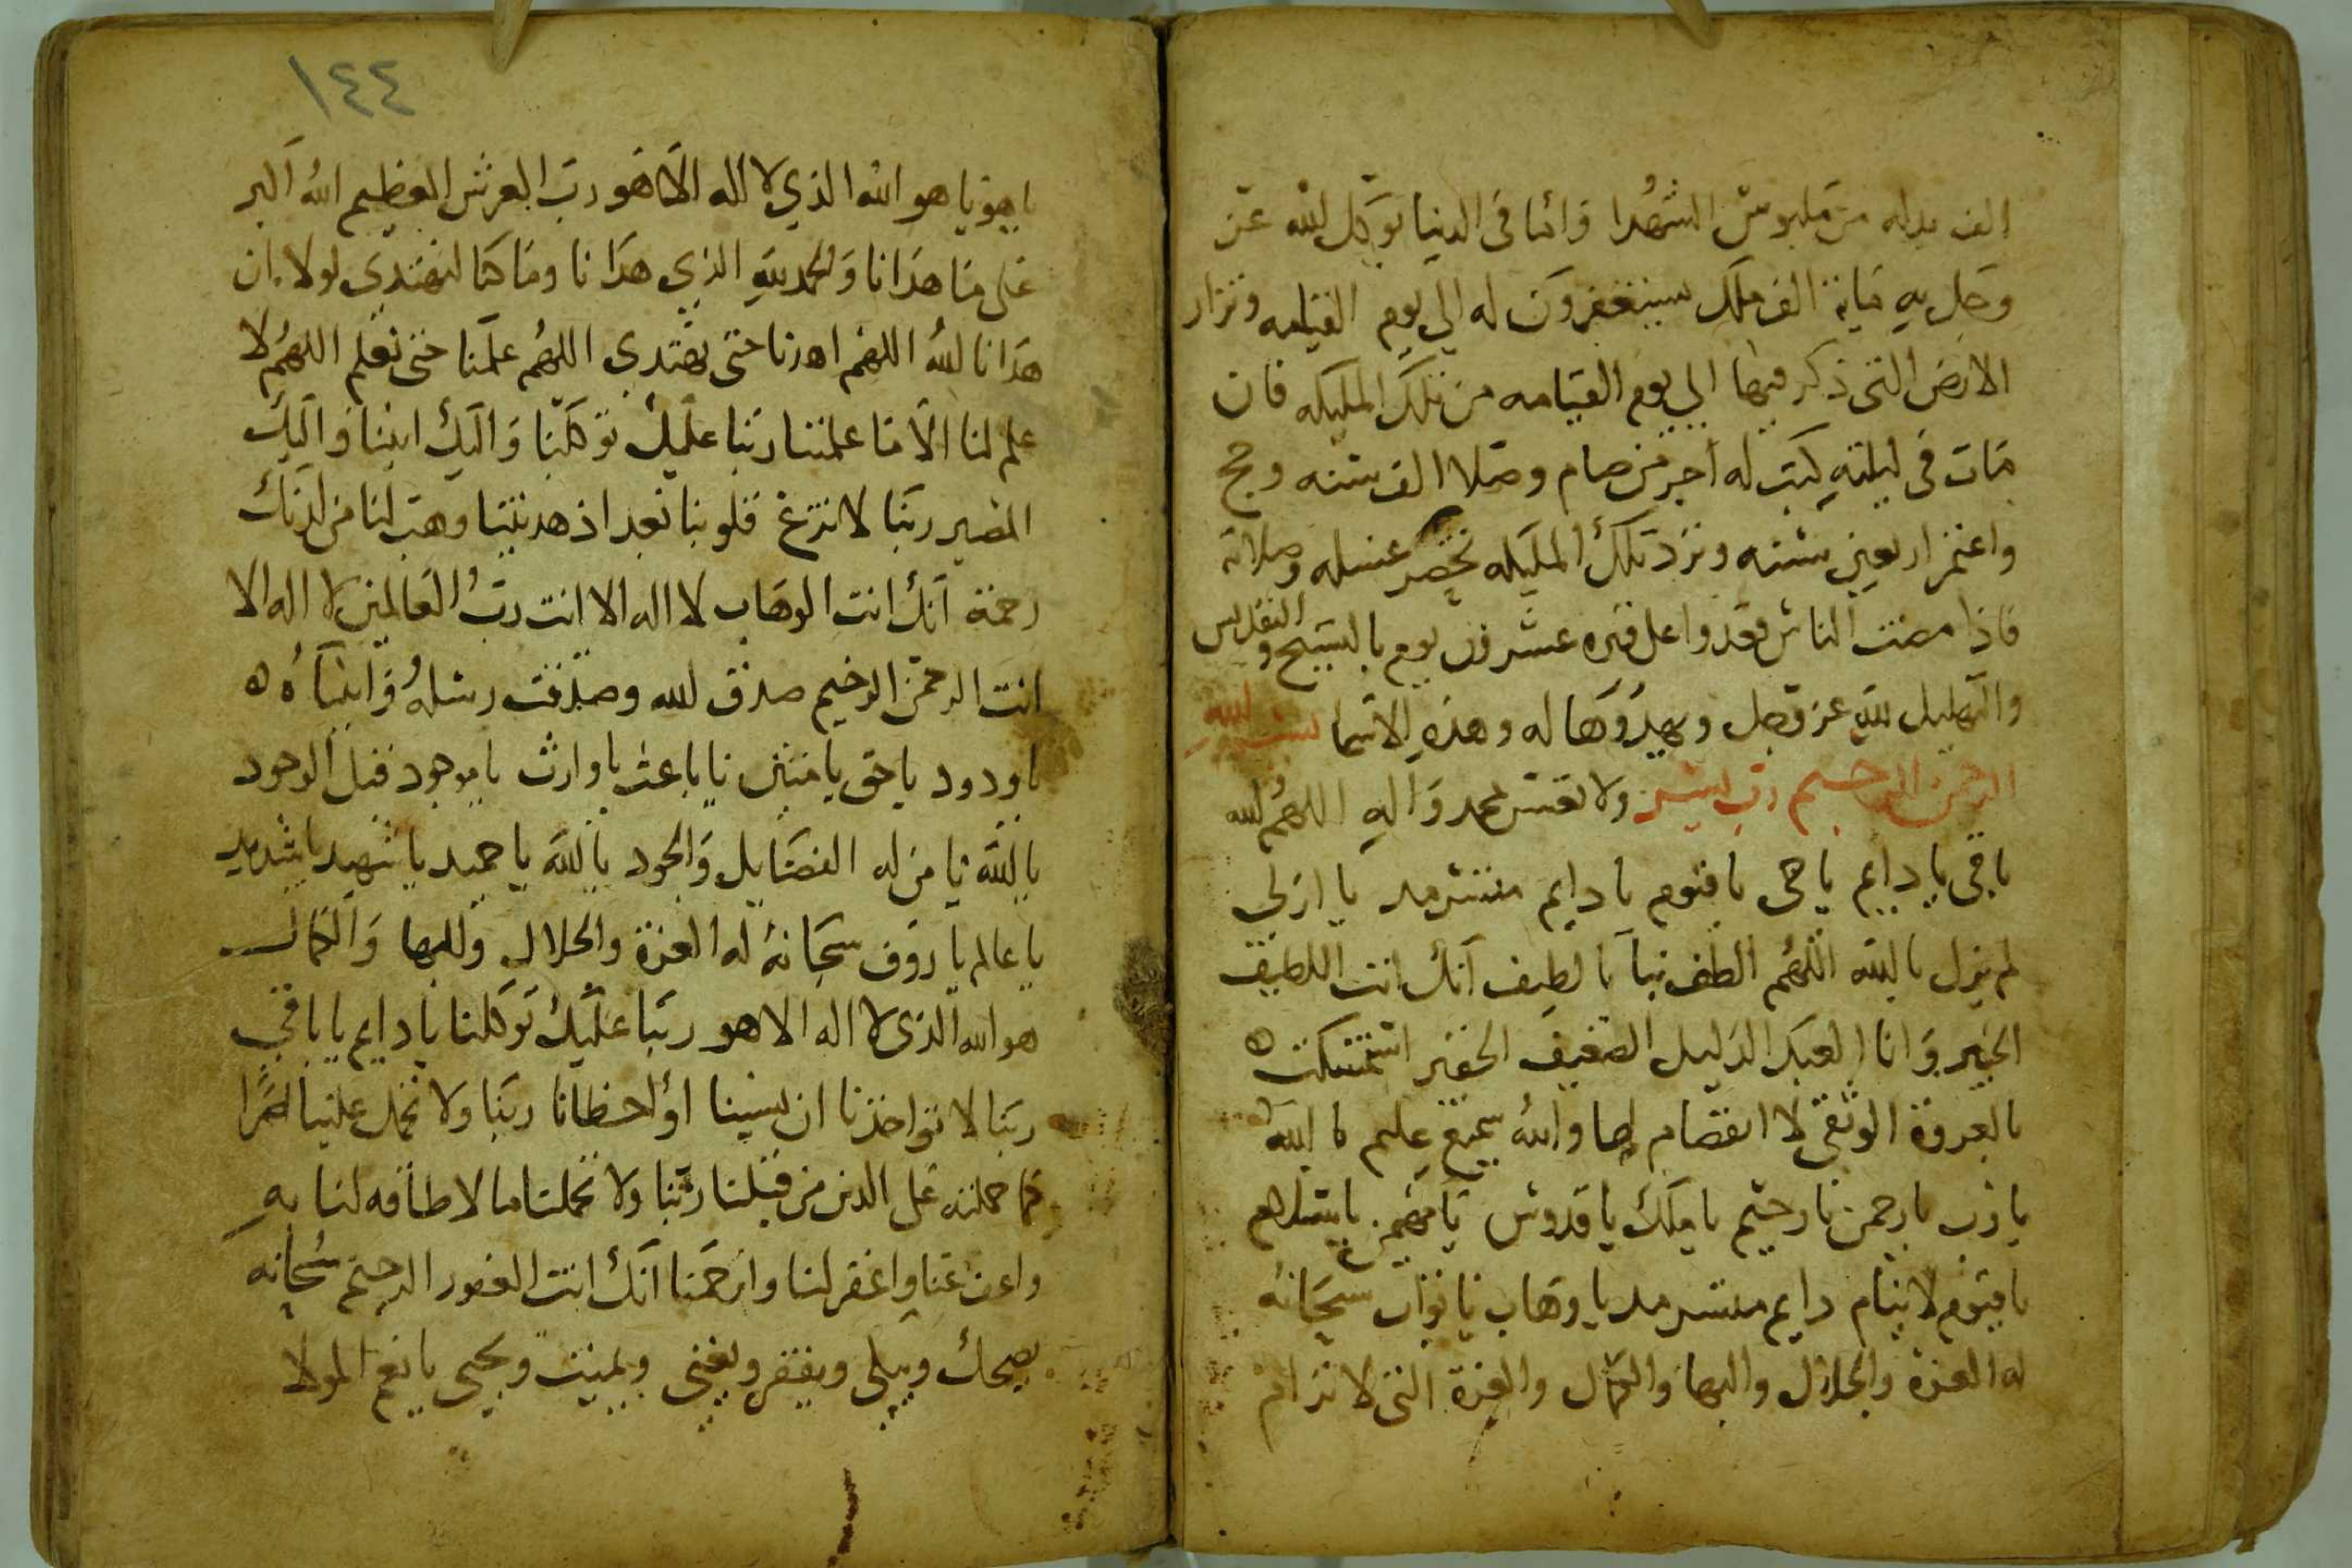 الف بدله من ملبوس الشهدا وامّا فى الدنيا توكل لله عز
وجل به مأية الف ملك يستغفرون له الي يوم القيامه وتزار
الارض التى ذكر فيها الي يوم القيامه من تلك المليكه فان
مات فى ليلته كتب له اجر من صام وصلا الف سنه وحج
واعتمر اربعين سنه وترد تلك المليكه تحضر غسله وصلاته
فاذا مضت الناس قعدوا على قبره عشرون يوم بالتسبيح والتقديس
والتهليل لله عز وجل ويهدوها له وهذه الاسما بسم الله
الرحمن الرحيم رب يسر ولا تعسر بمحمد واله اللهم يالله
باقى يا دايم يا حى يا قيوم يا دايم متسرمد يا ازلي
لم يزل يا لله اللهم الطف بنا يا لطيف انك انت اللطيف
الخبير وانا العبد الذليل الضعيف الحقير استمسكت ه
بالعروة الوثقى لا انفصام لها والله سميع عليم يا لله
يا رب يا رحمن يا رحيم يا ملك يا قدوس يا مهيمن يا سلاهم
يا قيوم لا ينام دايم متسرمد يا وهاب يا تواب سبحانه
له العزة والجلال والبها والكمال والعزة التى لا ترام
١٤٤
يا هو يا هو الله الذي لا اله الا هو رب العرش العظيم الله اكبر
على ما هدانا والحمد لله الذي هدانا وما كنا لنهتدي لولا ان
هدانا الله اللهم اهدنا حتى نهتدي اللهم علمنا حتى نعلم اللهم لا
علم لنا الا ما علمتنا ربنا عليك توكلنا واليك انبنا واليك
المصير ربنا لا تزغ قلوبنا بعد اذ هديتنا وهب لنا من لدنك
رحمة انك انت الوهاب لا اله الا انت رب العالمين لا اله الا
انت الرحمن الرحيم صدق الله وصدقت رسله وانبياؤه ه
يا ودود يا حق يا مبين يا باعث يا وارث يا موجود قبل الوجود
يا لله يا من له الفضايل والجود يا لله يا حميد يا شهيد يا شديد
يا عالم يا روف سبحانه له العزة والجلال والبها والكمال
هو الله الذى لا اله الا هو ربنا عليك توكلنا يا دايم يا باقي
ربنا لا تواخذنا ان نسينا او اخطانا ربنا ولا تحمل علينا اصرا
كما حملته على الذين من قبلنا ربنا ولا تحملنا ما لا طاقه لنا به
واعف عنا واغفر لنا وارحمنا انك انت الغفور الرحيم سبحانه
يضحك ويبكى ويفقر ويغنى ويميت ويحيى يا نعم المولا